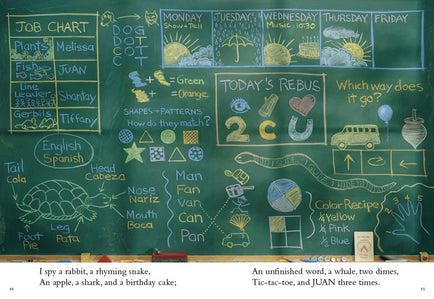 JOB CHART
Plants Melissa
Fish JUAN
Line Leader Shantay
Gerbils Tiffany
DOG
DOT
COT
MONDAY
Show + Tell
TUESDAY
WEDNESDAY
Music 10:30
THURSDAY
FRIDAY
+ = Green
+ = Orange
SHAPES + PATTERNS
How do they match?
TODAY'S REBUS
2 c U
Which way does it go?
English
Spanish
Tail
Cola
Head
Cabeza
Leg
Pata
Foot
Pie
Nose
Nariz
Mouth
Boca
Man
Fan
van
Can
Pan
Color Recipe
¼ Yellow
¼ Pink
½ Blue
1 2 3 4 5
I spy a rabbit, a rhyming snake,
An apple, a shark, and a birthday cake;
An unfinished word, a whale, two dimes,
Tic-tac-toe, and JUAN three times.